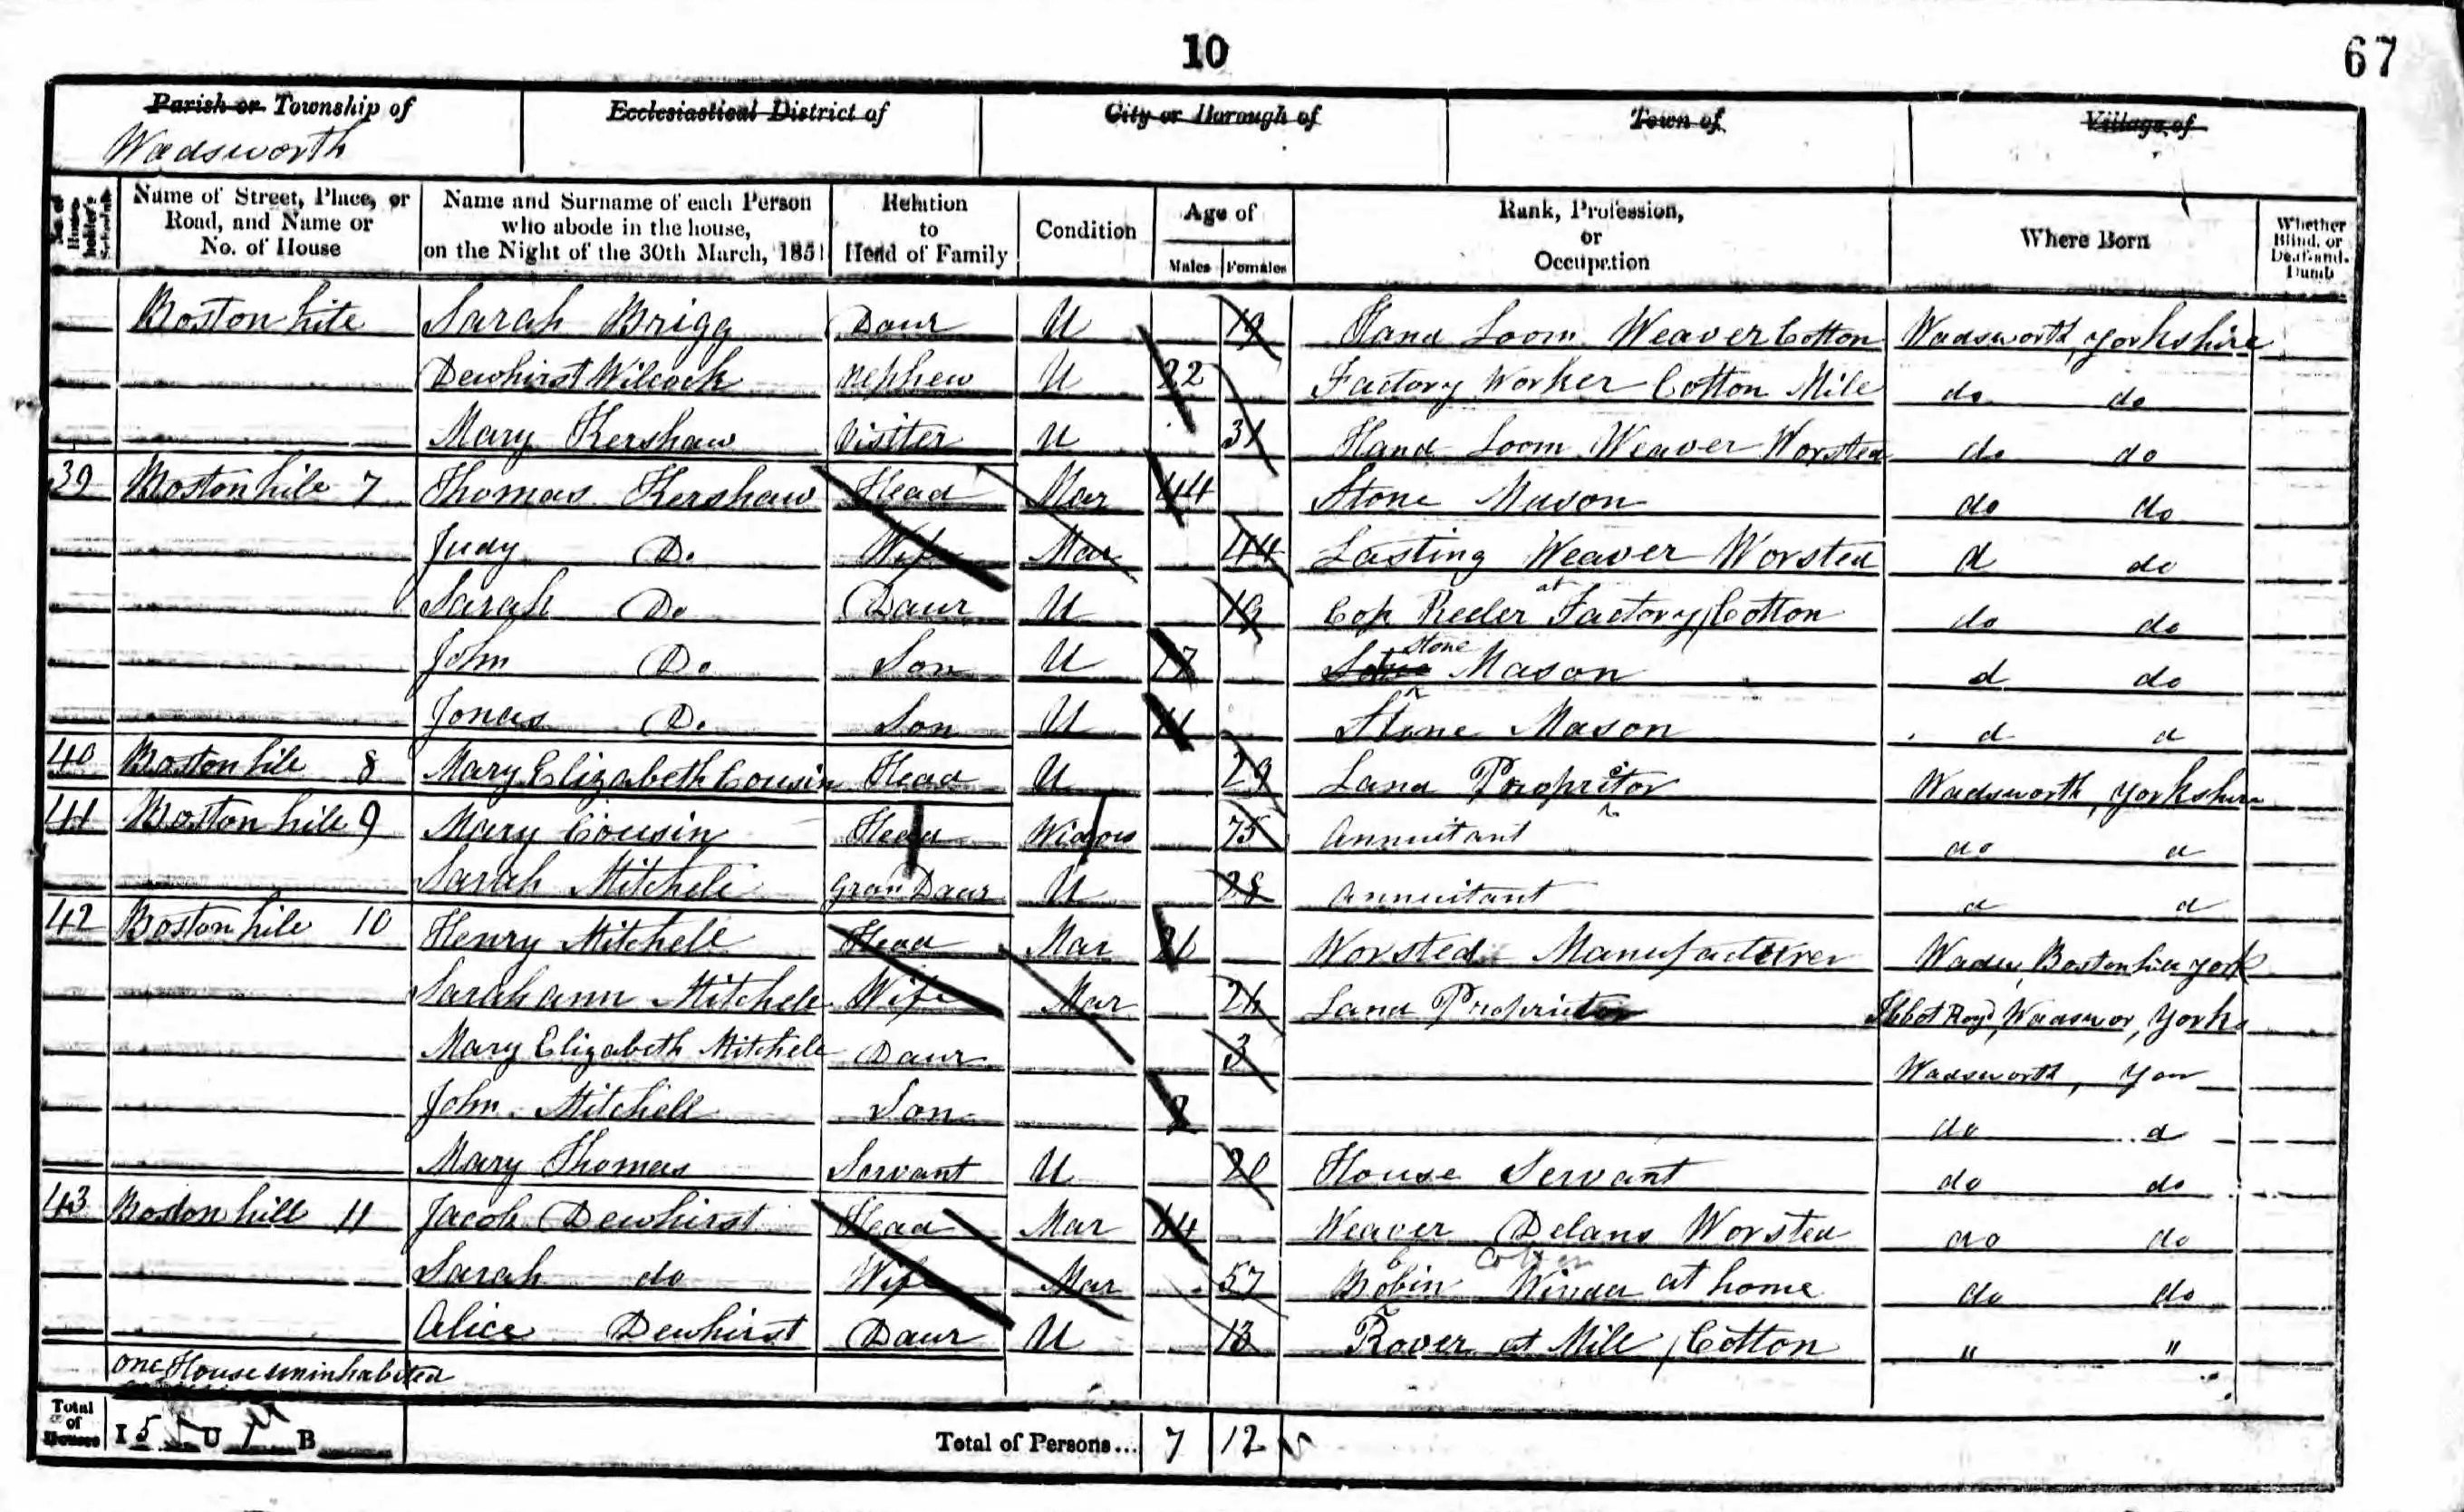 10
67
Parish or Township of
Ecclesiastical District of
City or Borough of
Town of
Village of
Wadsworth
No. of House-holder's Schedule
Name of Street, Place, or Road, and Name or No. of House
Name and Surname of each Person who abode in the house, on the Night of the 30th March, 1851
Relation to Head of Family
Condition
Age of
Males
Females
Rank, Profession, or Occupation
Where Born
Whether Blind, or Deaf-and-Dumb
Boston hile Sarah Brigg Daur U 19 Hand Loom Weaver Cotton Wadsworth, Yorkshire
Dewhirst Wilcock nephew U 22 Factory Worker Cotton Mile do do
Mary Kershaw Visitter U 31 Hand Loom Weaver Worsted do do
39 Boston hile 7 Thomas Kershaw Head Mar 44 Stone Mason do do
Judy Do Wife Mar 44 Lasting Weaver Worsted d do
Sarah Do Daur U 19 Cop Reeler at Factory, Cotton do do
John Do Son U 17 Stone Mason d do
Jonas Do Son U 11 Stone Mason d d
40 Boston hile 8 Mary Elizabeth Cousin Head U 29 Land Propritor Wadsworth, Yorkshire
41 Boston hile 9 Mary Cousin Head Widow 75 Annuitant do d
Sarah Mitchell Gran Daur U 28 Annuitant d d
42 Boston hile 10 Henry Mitchell Head Mar 26 Worsted Manufacturer Wads, Boston hill York
Sarah ann Mitchell Wife Mar 26 Land Proprietor Royd, Wadswor, Yorks
Mary Elizabeth Mitchell Daur 3 Wadsworth, Yor
John Mitchell Son do d
Mary Thomas Servant U 20 House Servant do do
43 Boston hill 11 Jacob Dewhirst Head Mar Weaver Delans Worsted do do
Sarah do Wife Mar 57 Bobin Cotton Winder at home do do
Alice Dewhirst Daur U 13 Rover at Mill, Cotton " "
One House uninhabited
Total of Houses I 5 U 1 B
Total of Persons... 7 12